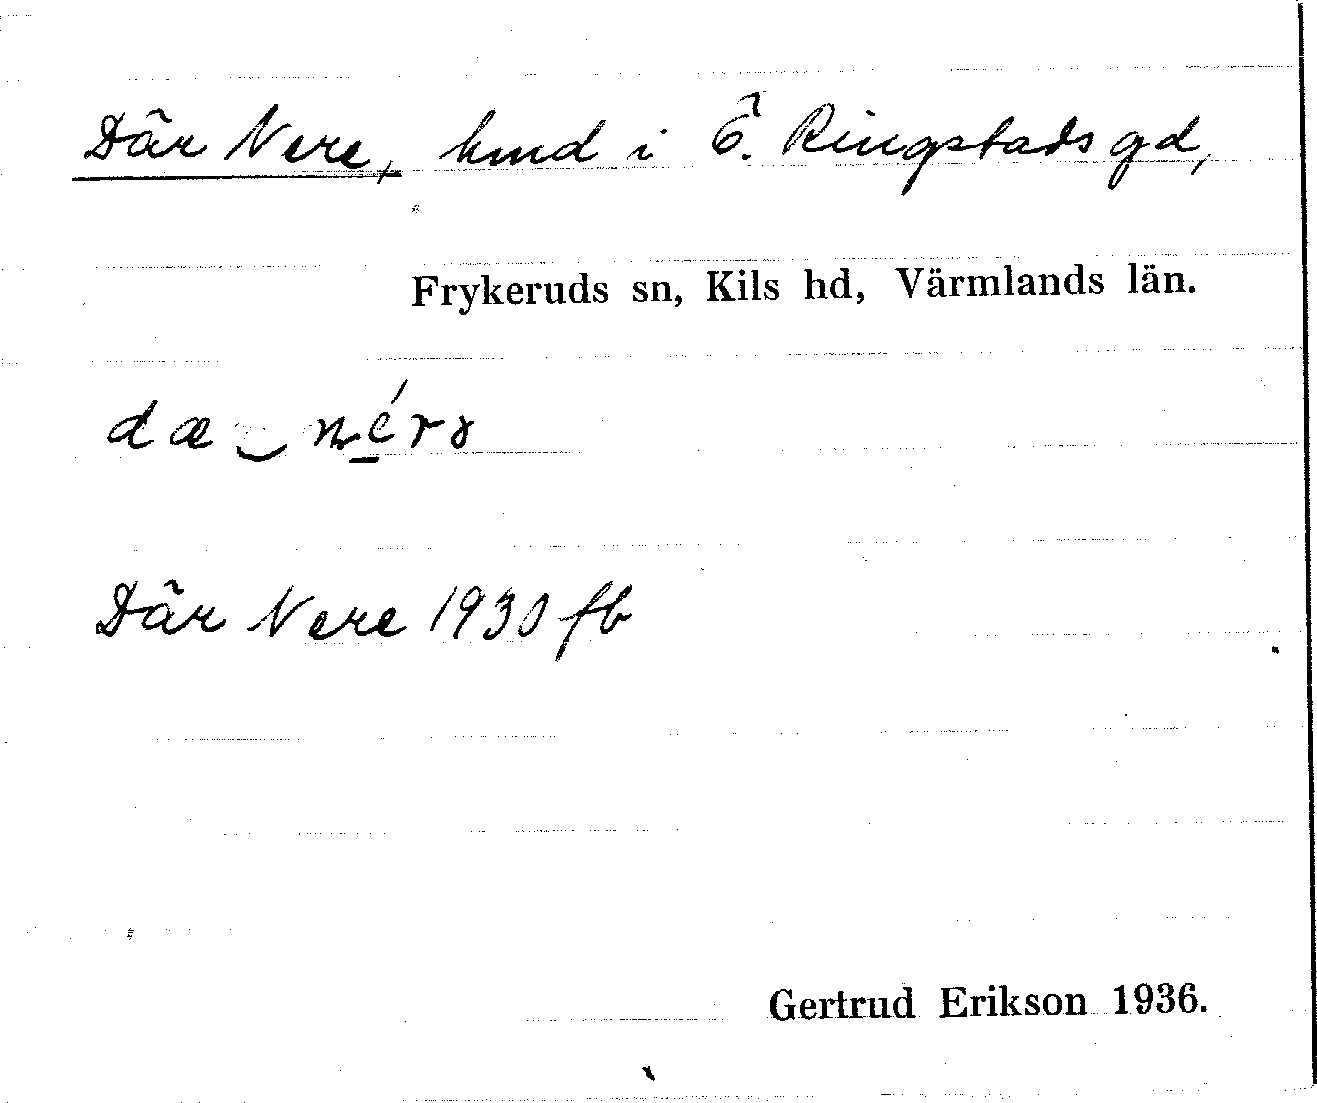 Där Nere, hmd i Ö. Ringstads gd,
Frykeruds sn, Kils hd, Värmlands län.
dæ‿né̱rə
Där Nere 1930 fb
Gertrud Erikson 1936.